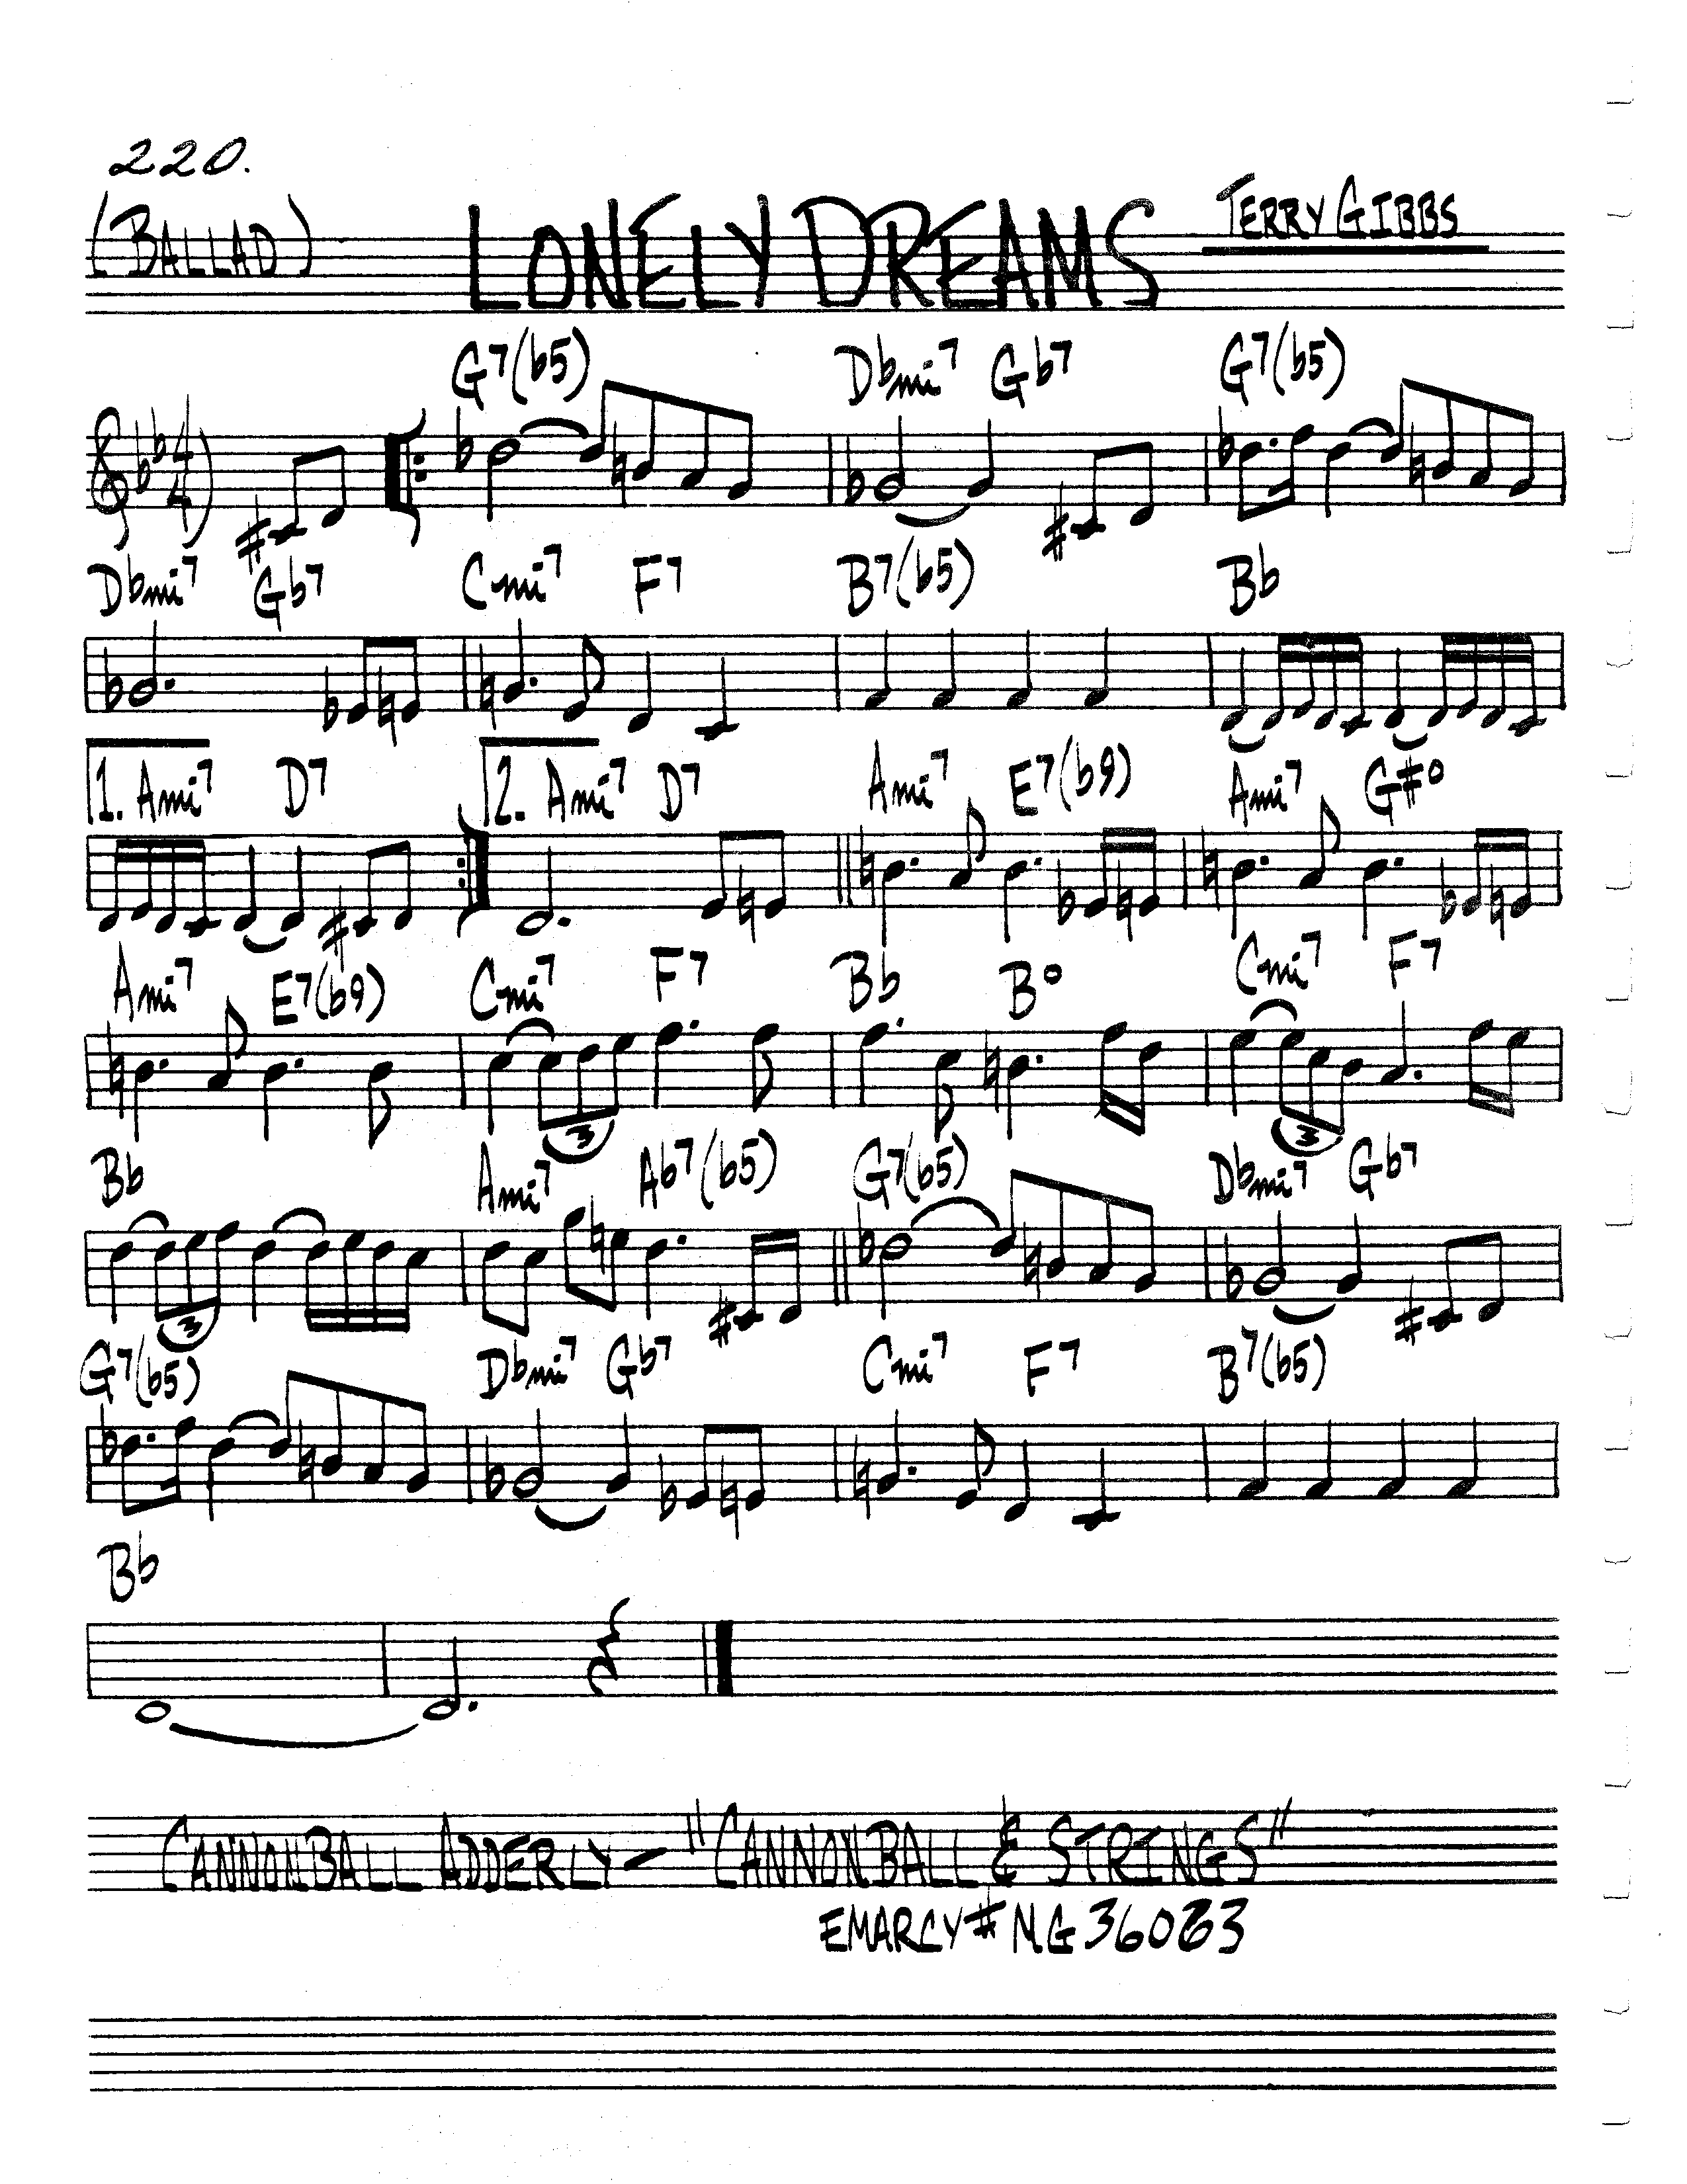 220.
(BALLAD) LONELY DREAMS TERRY GIBBS
G7(b5) Dbmi7 Gb7 G7(b5)
4/4
Dbmi7 Gb7 Cmi7 F7 B7(b5) Bb
1. Ami7 D7 2. Ami7 D7 Ami7 E7(b9) Ami7 G#o
Ami7 E7(b9) Cmi7 F7 Bb Bo Cmi7 F7
3 3
Bb Ami7 Ab7(b5) G7(b5) Dbmi7 Gb7
3
G7(b5) Dbmi7 Gb7 Cmi7 F7 B7(b5)
Bb
CANNONBALL ADDERLY - "CANNONBALL & STRINGS"
EMARCY # MG